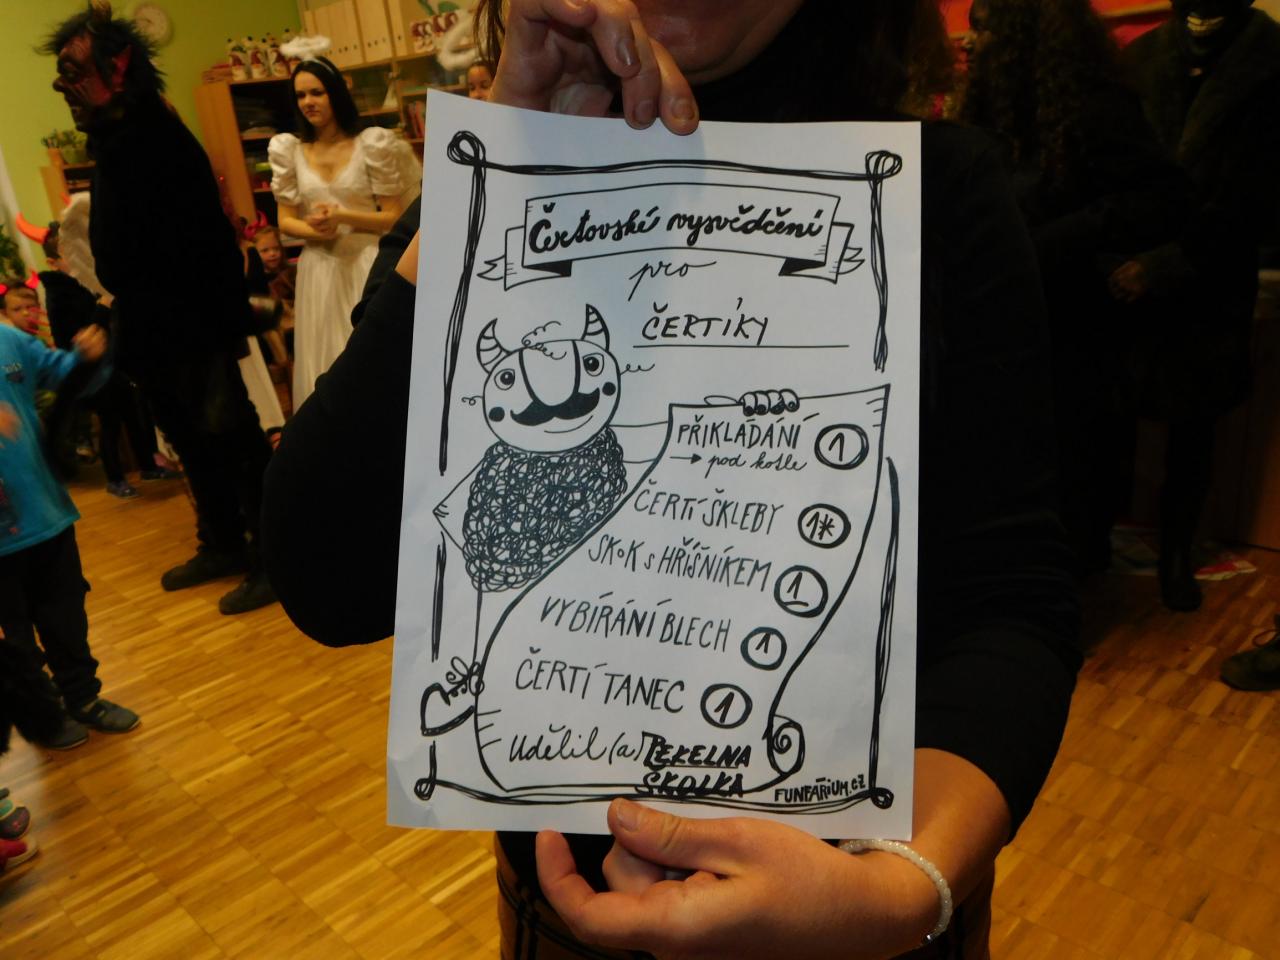 Čertovské vysvědčení
pro
ČERTÍKY
PŘIKLÁDÁNÍ 1
→ pod kotle
ČERTÍ ŠKLEBY 1*
SKOK S HŘÍŠNÍKEM 1
VYBÍRÁNÍ BLECH 1
ČERTÍ TANEC 1
Udělil (a) PEKELNA
ŠKOLKA
FUNFÁRIUM.CZ